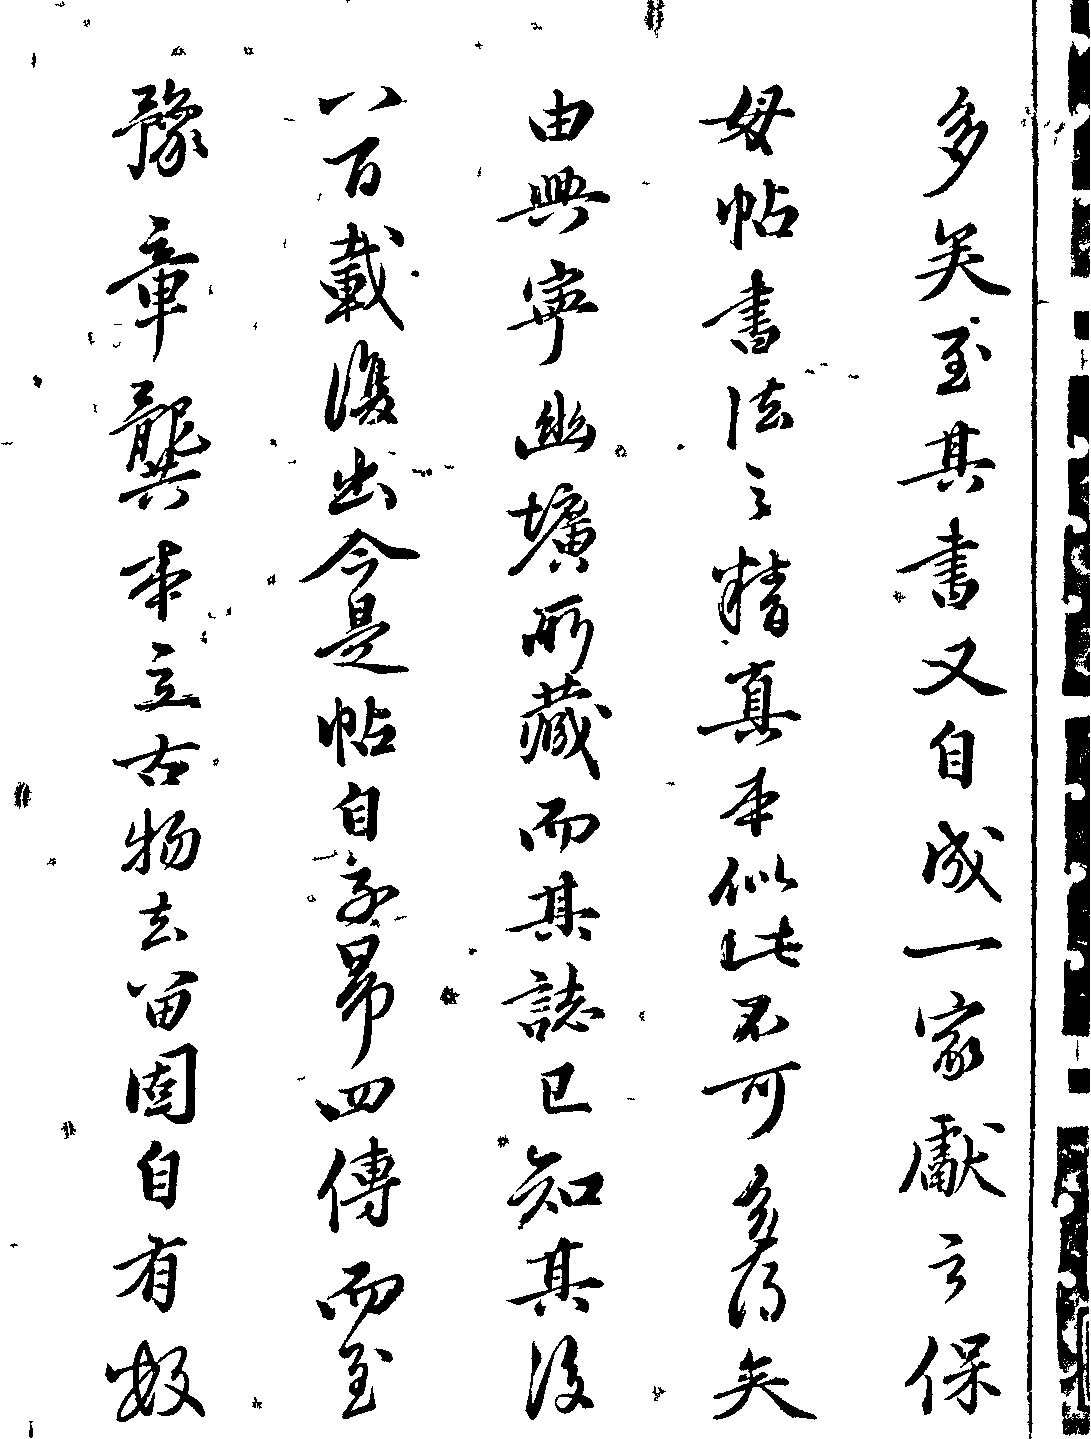 多矣至其書又自成一家獻之保
母帖書法之精真本似此不可多得矣
由興寧幽壙所藏而其誌已知其後
八百載復出今是帖自 昴四傳而至
豫章龔本立古物去留固自有數